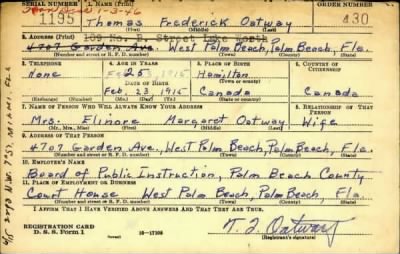 1. NAME (Print) ORDER NUMBER
1195 Thomas Frederick Oatway 430
2. ADDRESS (Print) 109 No. D. Street Lake Worth
4707 Garden Ave. West Palm Beach, Palm Beach, Fla.
(Number and street or R. F. D. number) (Town) (County) (State)
3. TELEPHONE 4. AGE IN YEARS 5. PLACE OF BIRTH 6. COUNTRY OF CITIZENSHIP
None 25 Hamilton
DATE OF BIRTH (Town or county)
Feb. 23, 1915 Canada Canada
7. NAME OF PERSON WHO WILL ALWAYS KNOW YOUR ADDRESS 8. RELATIONSHIP OF THAT PERSON
Mrs. Elinore Margaret Oatway Wife
(Mr., Mrs., Miss) (First) (Middle) (Last)
9. ADDRESS OF THAT PERSON
4707 Garden Ave., West Palm Beach, Palm Beach, Fla.
(Number and street or R. F. D. number) (Town) (County) (State)
10. EMPLOYER'S NAME
Board of Public Instruction, Palm Beach County
11. PLACE OF EMPLOYMENT OR BUSINESS
Court House West Palm Beach, Palm Beach, Fla.
(Number and street or R. F. D. number) (Town) (County) (State)
I AFFIRM THAT I HAVE VERIFIED ABOVE ANSWERS AND THAT THEY ARE TRUE.
REGISTRATION CARD
D. S. S. Form 1 16—17105 T. F. Oatway
(Registrant's signature)